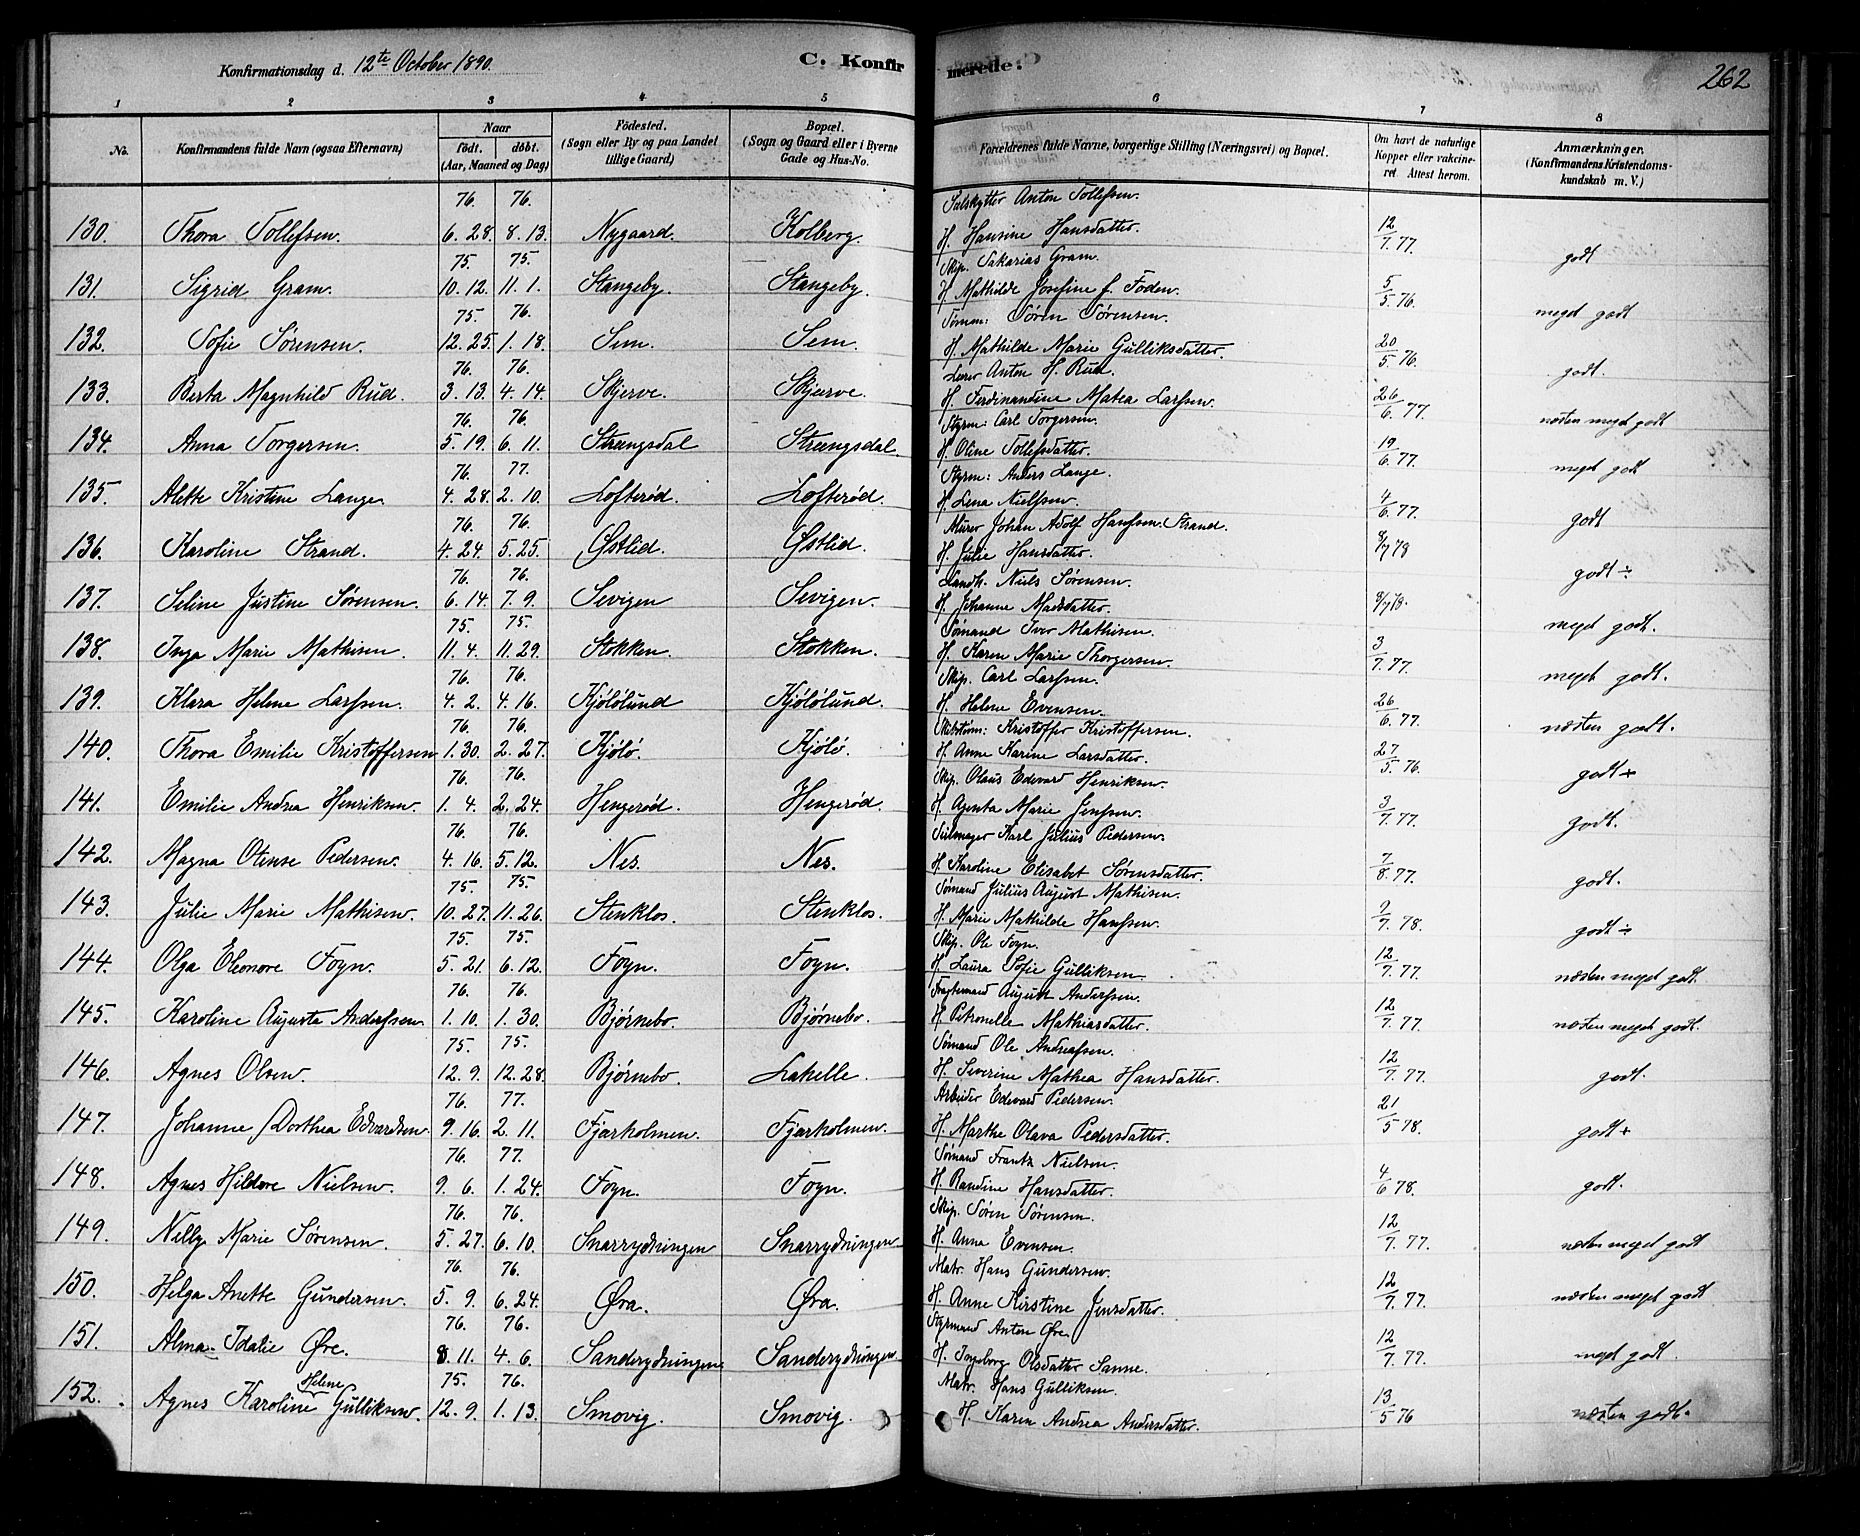 Konfirmationsdag d. 12te October 1890.
C. Konfir
merede.
262
1 2 3 4 5 6 7 8
No.
Konfirmandens fulde Navn (ogsaa Efternavn)
Naar
født. døbt.
(Aar, Maaned og Dag)
Fødested.
(Sogn eller By og paa Landet
tillige Gaard)
Bopæl.
(Sogn og Gaard eller i Byerne
Gade og Hus-No.
Forældrenes fulde Navne, borgerlige Stilling (Næringsvei) og Bopæl.
Om havt de naturlige
Kopper eller vakcine-
ret. Attest herom.
Anmærkninger.
(Konfirmandens Kristendoms-
kundskab m. V.)
76. 76. Sælskytter Anton Tollefsen.
130. Thora Tollefsen. 6. 28. 8. 13. Nygaard. Kolberg. H. Hansine Hansdatter. 12/7. 77. godt
75. 75. Skip. Sakarias Gram.
131. Sigrid Gram. 10. 12. 11. 1. Stangeby. Stangeby. H. Mathilde Josefine f. Foden. 5/5 76. meget godt
75. 76. Söman: Sören Sörensen.
132. Sofie Sörensen. 12. 25. 1. 18. Sem. Sem. H. Mathilde Marie Gulliksdatter. 20/5 76. godt.
76. 76. Lærer Anton H. Rud.
133. Berta Magnhild Rud. 3. 13. 4. 14. Skjerve. Skjerve. H. Ferdinandine Matea Larssen. 26/6. 77. næsten meget godt
76. 76. Styrm: Carl Torgersen.
134. Anna Torgersen. 5. 19. 6. 11. Strængsdal Strængsdal. H. Oline Tollefsdatter. 19/6. 77. meget godt
76. 77. Styrm: Anders Lange.
135. Alette Kristine Lange 4. 28. 2. 10. Lofteröd. Lofteröd. H. Lena Nielssen. 4/6. 77. godt
76. 76. Murer Johan Adolf Hanssen Strand.
136. Karoline Strand. 4. 24. 5. 25. Østlid. Østlid. H. Julie Hansdatter. 8/7 78 godt ÷
76. 76. Landh. Niels Sörensen.
137. Seline Justine Sørensen. 6. 14. 7. 9. Sevigen Sevigen. H. Johanne Madsdatter. 8/7 78. meget godt.
75. 75. Sömand Iver Mathisen.
138. Inga Marie Mathisen. 11. 4. 11. 29. Stokken. Stokken. H. Karen Marie Thorgersen. 3/7. 77. meget godt.
76. 76. Skip. Carl Larssen.
139. Klara Helene Larssen. 4. 2. 4. 16. Kjölölund Kjölölund. H. Helene Evensen. 26/6. 77. næsten godt.
76. 76. Kristoffer Kristoffersen.
140. Thora Emilie Kristoffersen 1. 30. 2. 27. Kjölö. Kjölö. H. Anne Karine Larsdatter. 27/5. 76. godt +
76. 76. Skip. Olaus Edevard Henriksen.
141. Emilie Andrea Henriksen. 1. 4. 2. 24. Hengeröd. Hengeröd. H. Agenta Marie Jenssen. 3/7. 77. godt.
76. 76. Seilmager Karl Julius Pedersen.
142. Magna Otense Pedersen. 4. 16. 5. 12. Nes. Nes. H. Karoline Elisabet Sörensdatter. 7/8. 77. godt.
75. 75. Sömand Julius August Mathisen.
143. Julie Marie Mathisen. 10. 27. 11. 26. Stenklos. Stenklos. H. Marie Mathilde Hanssen. 2/7. 78. godt ÷
75. 75. Skip. Ole Foyn.
144. Olga Eleonore Foyn. 5. 21. 6. 12. Foyn. Foyn. H. Laura Sofie Gulliksen. 12/7. 77. næsten meget godt.
76. 76. Fragtemand August Anderssen.
145. Karoline Augusta Anderssen. 1. 10. 1. 30. Bjørnebo. Bjørnebo. H. Petronelle Mathiasdatter. 12/7. 77. næsten meget godt.
75. 75. Sømand Ole Andreassen.
146. Agnes Olsen. 12. 9. 12. 28. Bjørnebo. Lakelle. H. Severine Mathea Hansdatter. 12/7. 77. godt.
76. 77. Arbeider Edevard Pedersen.
147. Johanne Dorthea Edvardsen. 9. 16. 2. 11. Fjærholmen. Fjærholmen. H. Marthe Olava Pedersdatter. 21/5 78. godt +
76. 77. Sömand Frantz Nielsen.
148. Agnes Hildore Nielsen. 9. 6. 1. 24. Foyn. Foyn. H. Randine Hansdatter. 4/6 78. godt.
76. 76. Skip. Sören Sörensen.
149. Nelly Marie Sörensen. 5. 27. 6. 10. Snarrydningen Snarrydningen H. Anne Evensen. 12/7. 77. næsten meget godt
76. 76. Matr. Hans Gundersen.
150. Helga Anette Gundersen. 5. 9. 6. 24. Øra. Øra. H. Anne Kirstine Jensdatter. 12/7. 77. næsten meget godt
76. 76. Styrmand Anton Øre.
151. Alma Idalie Øre. 8. 11. 4. 6. Sanderydningen Sanderydningen H. Ingeborg Olsdatter Sanne. 12/7. 77. meget godt.
75. 76. Matr. Hans Gulliksen.
152. Agnes Karoline Helene Gulliksen. 12. 9. 1. 13. Smovig. Smovig. H. Karen Andrea Andersdatter. 13/5 76 næsten godt.